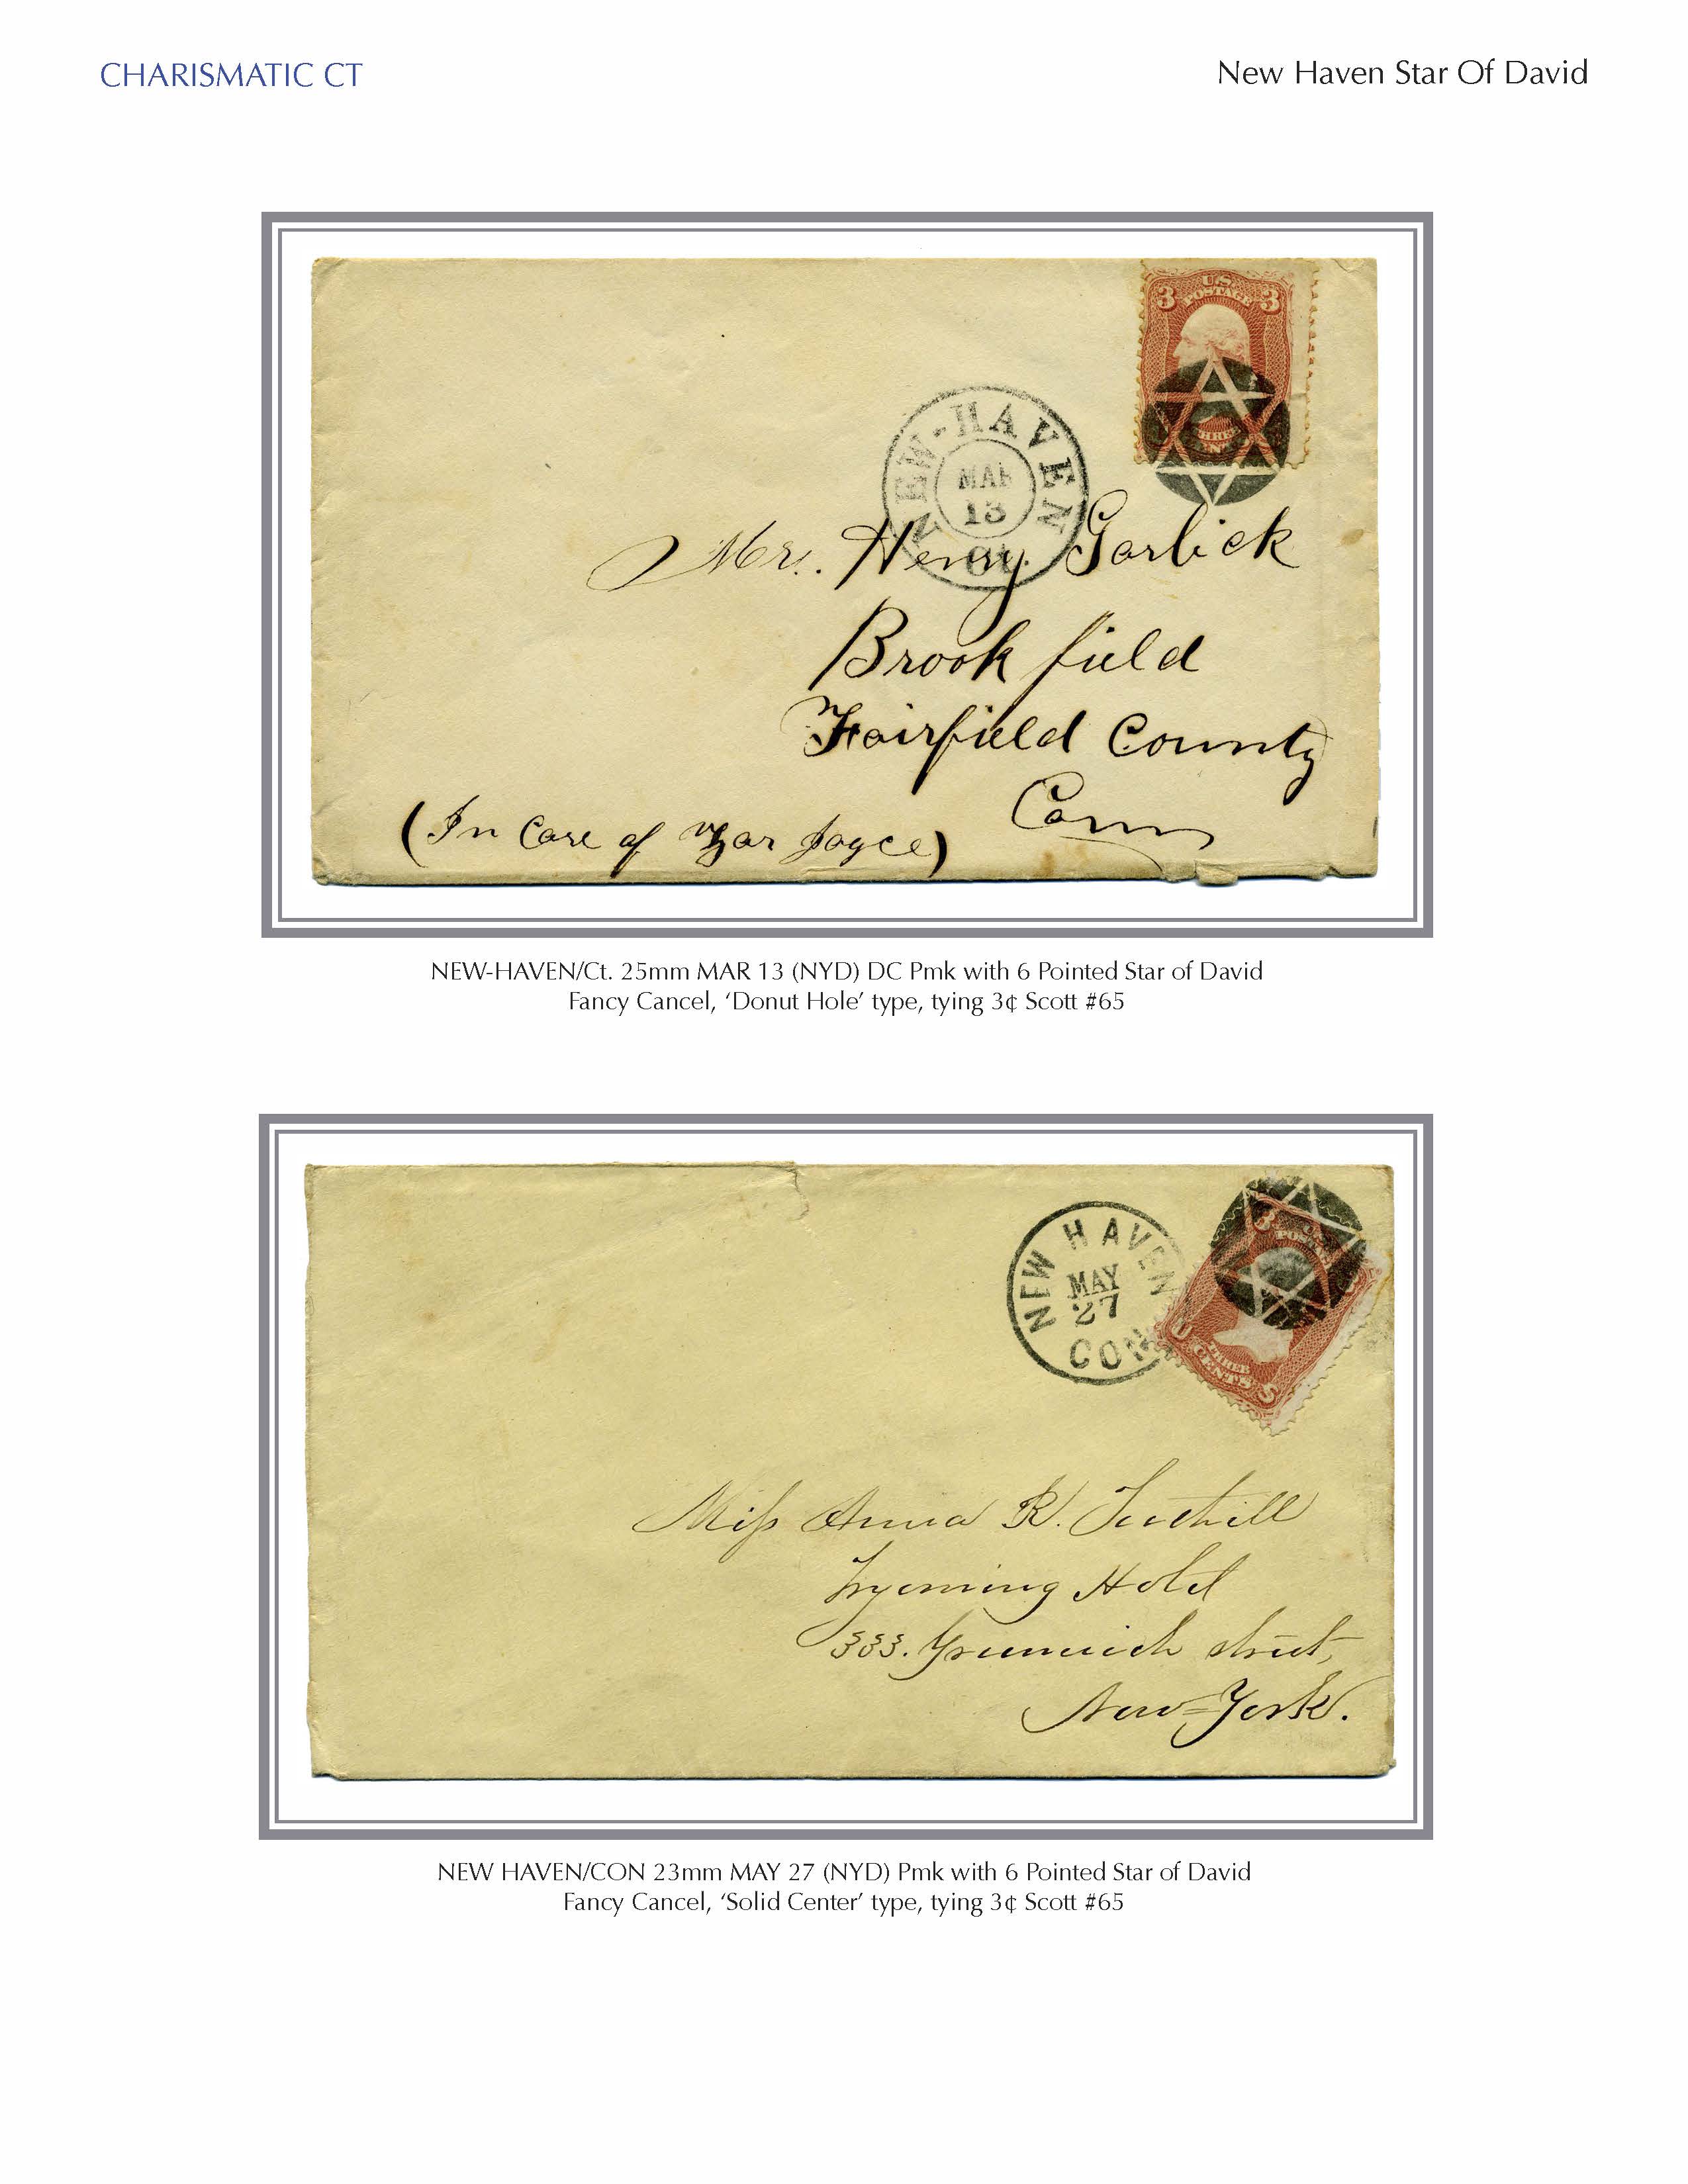 CHARISMATIC CT
New Haven Star Of David
3 U.S. POSTAGE 3
NEW-HAVEN
MAR
13
Ct.
Mr. Henry Garlick
Brookfield
Fairfield County
Conn
(In Care of Joyce)
NEW-HAVEN/Ct. 25mm MAR 13 (NYD) DC Pmk with 6 Pointed Star of David
Fancy Cancel, ‘Donut Hole’ type, tying 3¢ Scott #65
NEW HAVEN
MAY
27
CON
3
THREE
CENTS
Miss Anna R. Tuthill
Hotel
333. Greenwich street,
New=York.
NEW HAVEN/CON 23mm MAY 27 (NYD) Pmk with 6 Pointed Star of David
Fancy Cancel, ‘Solid Center’ type, tying 3¢ Scott #65